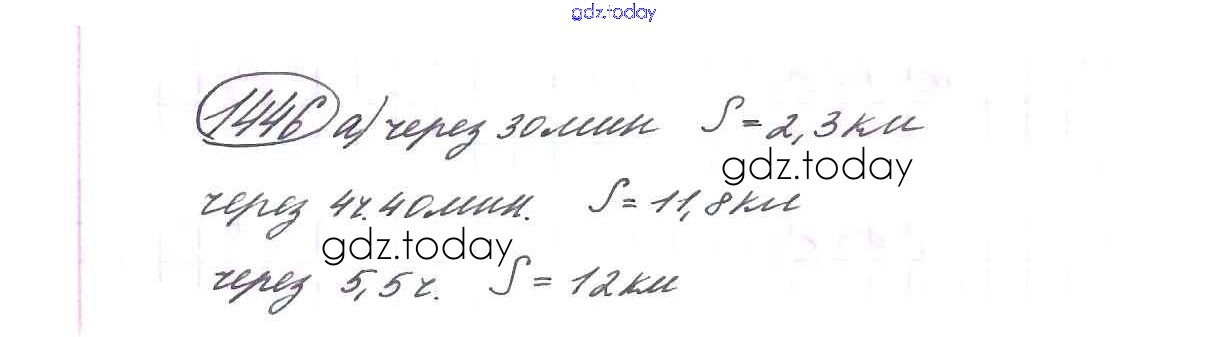 gdz.today
1446 а) через 30 мин S = 2,3 км
gdz.today
через 4ч. 40 мин. S = 11,8 км
gdz.today
через 5,5 ч. S = 12 км